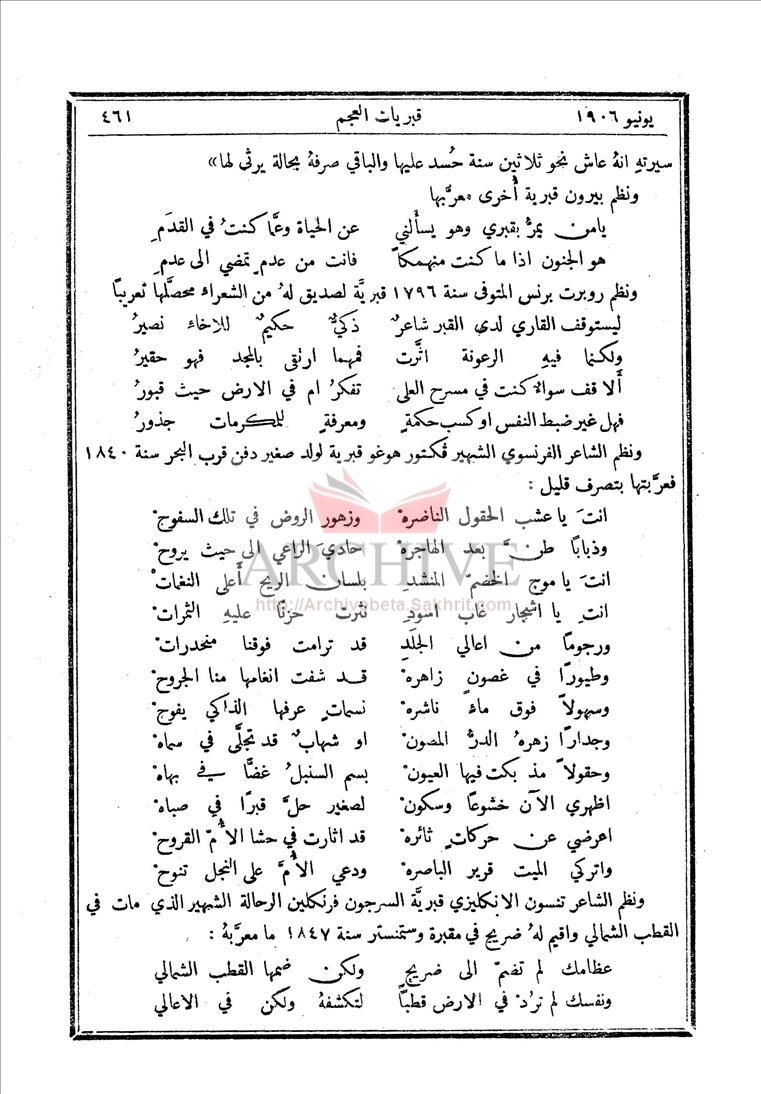 يونيو ١٩٠٦ قبريات العجم ٤٦١
سيرتهِ انهُ عاش نحو ثلاثين سنة حُسد عليها والباقي صرفهُ بحالة يرثى لها»
ونظم بيرون قبرية أُخرى معرَّبها
يامن يمرُّ بقبري وهو يسأَلني عن الحياة وعمَّا كنتُ في القدَمِ
هو الجنون اذا ما كنت منهمكاً فانت من عدمٍ تمضي الى عدمِ
ونظم روبرت برنس المتوفى سنة ١٧٩٦ قبريَّة لصديق لهُ من الشعراء محصَّلها تعريبًا
ليستوقف القاري لدى القبر شاعرٌ ذكيٌّ حكيمٌ للاخاءِ نصيرُ
ولكنما فيهِ الرعونة اثَّرت فمهما ارتقى بالمجد فهو حقيرُ
أَلا قف سواءٌ كنت في مسرح العلى تفكرُ ام في الارض حيث قبورُ
فهل غير ضبط النفس او كسب حكمةٍ ومعرفةٍ للمكرمات جذورُ
ونظم الشاعر الفرنسوي الشهير ڤكتور هوغو قبرية لولد صغير دفن قرب البحر سنة ١٨٤٠
فعرَّبتها بتصرف قليل :
انتَ يا عشب الحقول الناضرهْ وزهور الروض في تلك السفوحْ
وذبابًا طنَّ بعد الهاجرهْ حاديَ الراعي الى حيث يروحْ
انتَ يا موج الخضمّ المنشدِ بلسان الريح أَعلى النغماتْ
انتِ يا اشجار غاب اسودِ نثرت حزنًا عليهِ الثمراتْ
ورجومًا من اعالي الجلَدِ قد ترامت فوقنا منحدراتْ
وطيورًا في غصونٍ زاهرهْ قد شفت انغامها منا الجروحْ
وسهولاً فوق ماءٍ ناشرهْ نسماتٍ عرفها الذاكي يفوحْ
وجدارًا زهرهُ الدرُّ المصونْ او شهابٌ قد تجلَّى في سماهْ
وحقولاً مذ بكت فيها العيونْ بسم السنبلُ غضًّا في بهاهْ
اظهري الآن خشوعًا وسكونْ لصغير حلَّ قبرًا في صباهْ
اعرضي عن حركاتٍ ثائرهْ قد اثارت في حشا الأُمّ القروحْ
واتركي الميت قرير الباصرهْ ودعي الأُمَّ على النجل تنوحْ
ونظم الشاعر تنسون الانكليزي قبريَّة السرجون فرنكلين الرحالة الشهير الذي مات في
القطب الشمالي واقيم لهُ ضريح في مقبرة وستمنستر سنة ١٨٤٧ ما معرَّبهُ :
عظامك لم تضمّ الى ضريحٍ ولكن ضمها القطب الشمالي
ونفسك لم ترُدْ في الارض قطبًا لتكشفهُ ولكن في الاعالي
ARCHIVE
http://Archivebeta.Sakhrit.com